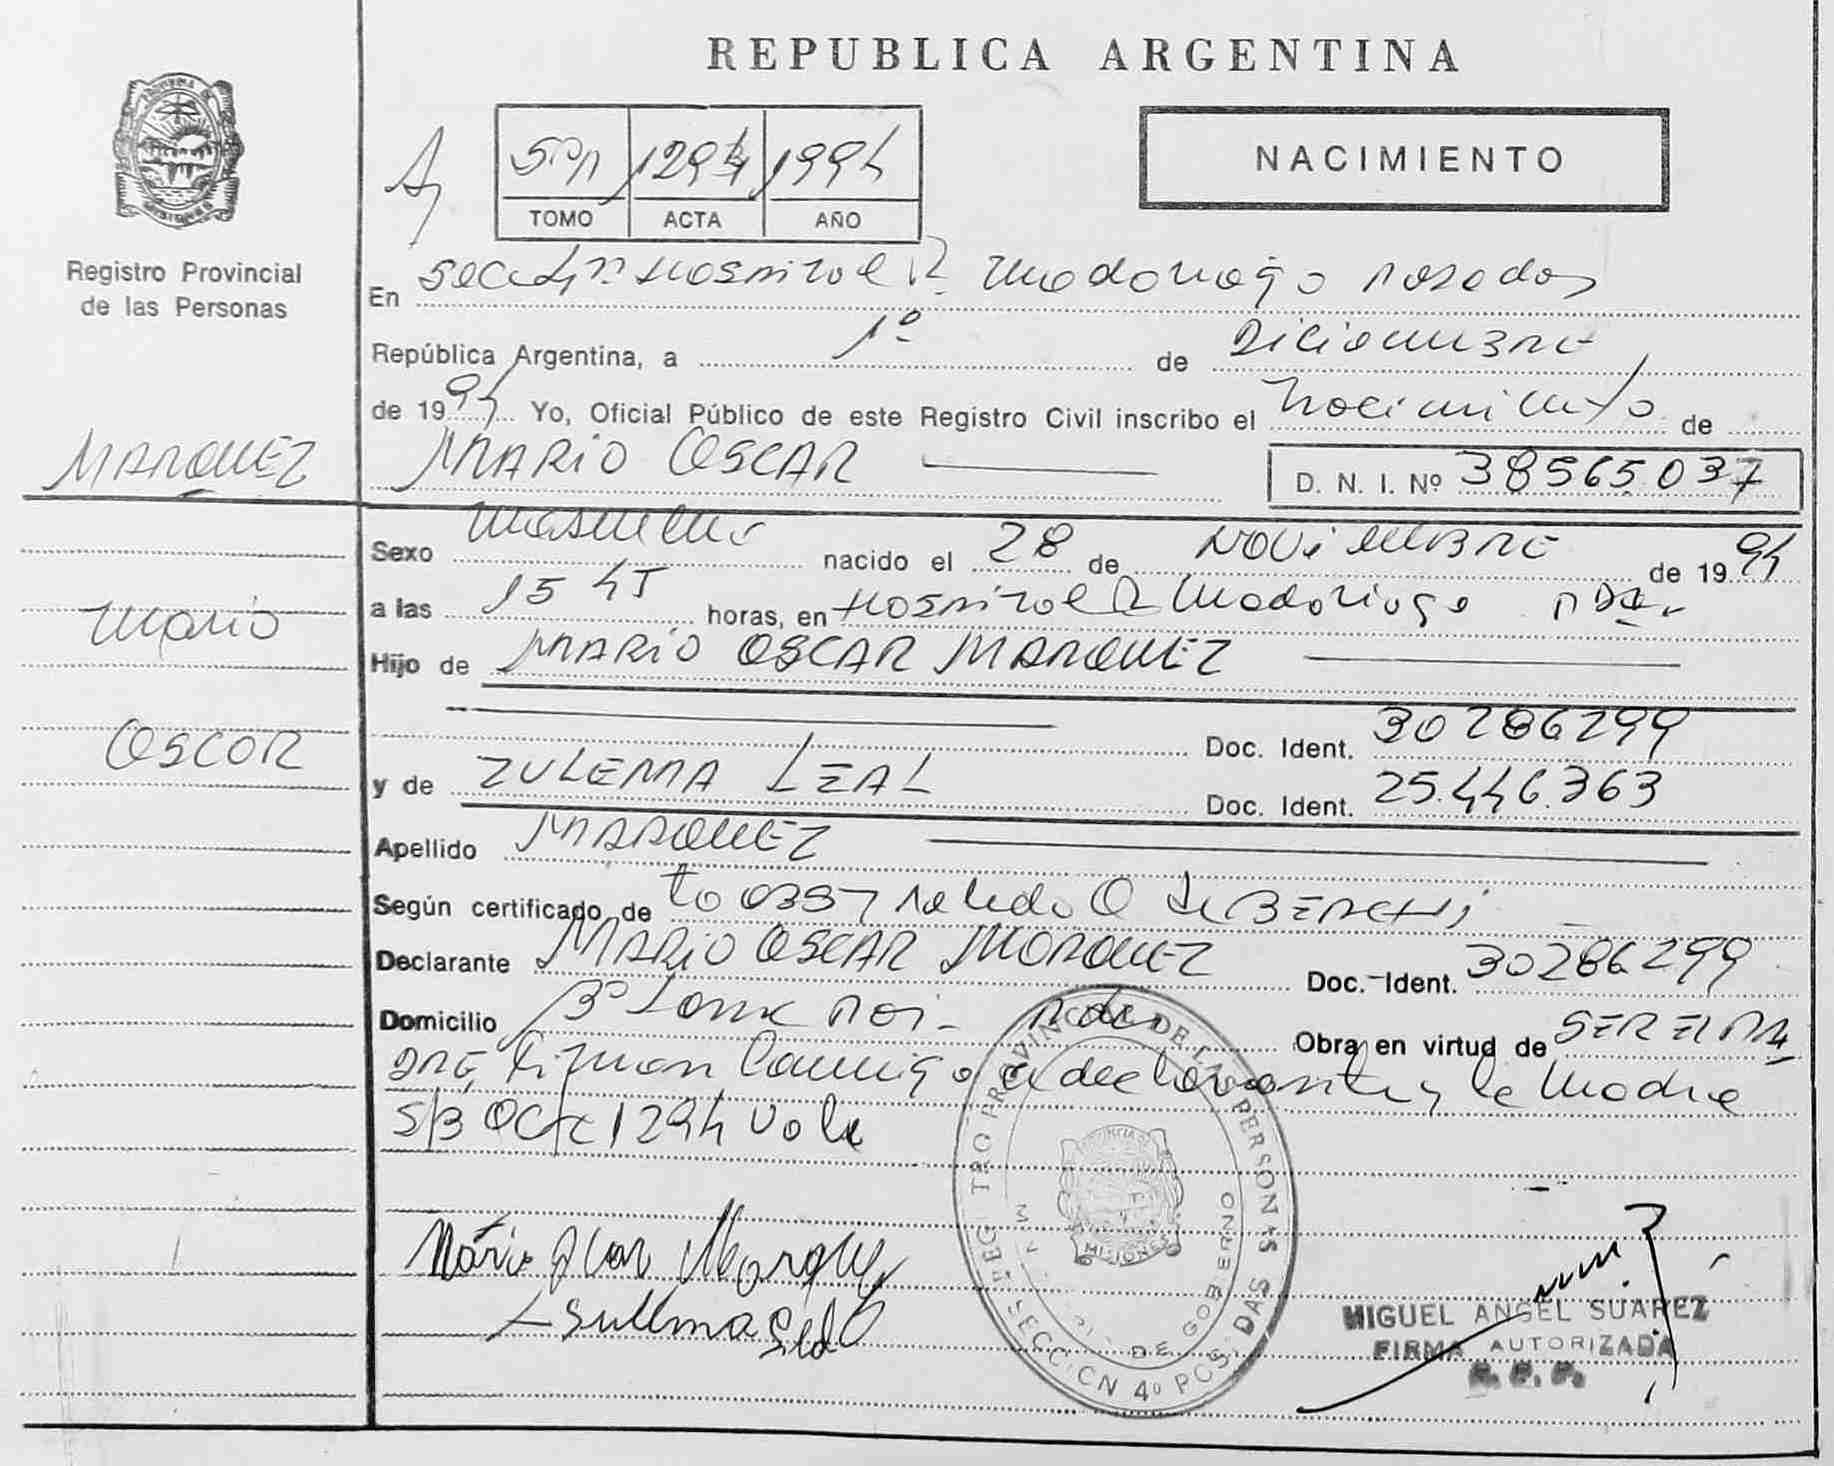 REPUBLICA ARGENTINA
PROVINCIA DE
MISIONES
Registro Provincial
de las Personas
1294 1994
TOMO ACTA AÑO
NACIMIENTO
En Secc 4ª Hospital R. Madariaga Posadas
República Argentina, a 1º de Diciembre
de 1994 Yo, Oficial Público de este Registro Civil inscribo el Nacimiento de
MARQUEZ
MARIO OSCAR
D. N. I. Nº 38565.037
Sexo Masculino nacido el 28 de NOVIEMBRE de 1994
a las 15 45 horas, en Hospital R Madariaga Pdas
Mario
Hijo de MARIO OSCAR MARQUEZ
Oscar
Doc. Ident. 30286299
y de ZULEMA LEAL Doc. Ident. 25.446.363
Apellido MARQUEZ
Según certificado de
Declarante MARIO OSCAR MARQUEZ Doc.-Ident. 30286299
Domicilio Pdas Obra en virtud de SER EL PA
DRE, Firman Conmigo el declarante y la Madre
S/B Acta 1294 Vale
Mario Oscar Marquez
REGISTRO PROVINCIAL DE LAS PERSONAS
SECCION 4º POSADAS
DE GOBIERNO
PROVINCIA DE
MISIONES
MIGUEL ANGEL SUAREZ
FIRMA AUTORIZADA
R. P. P.